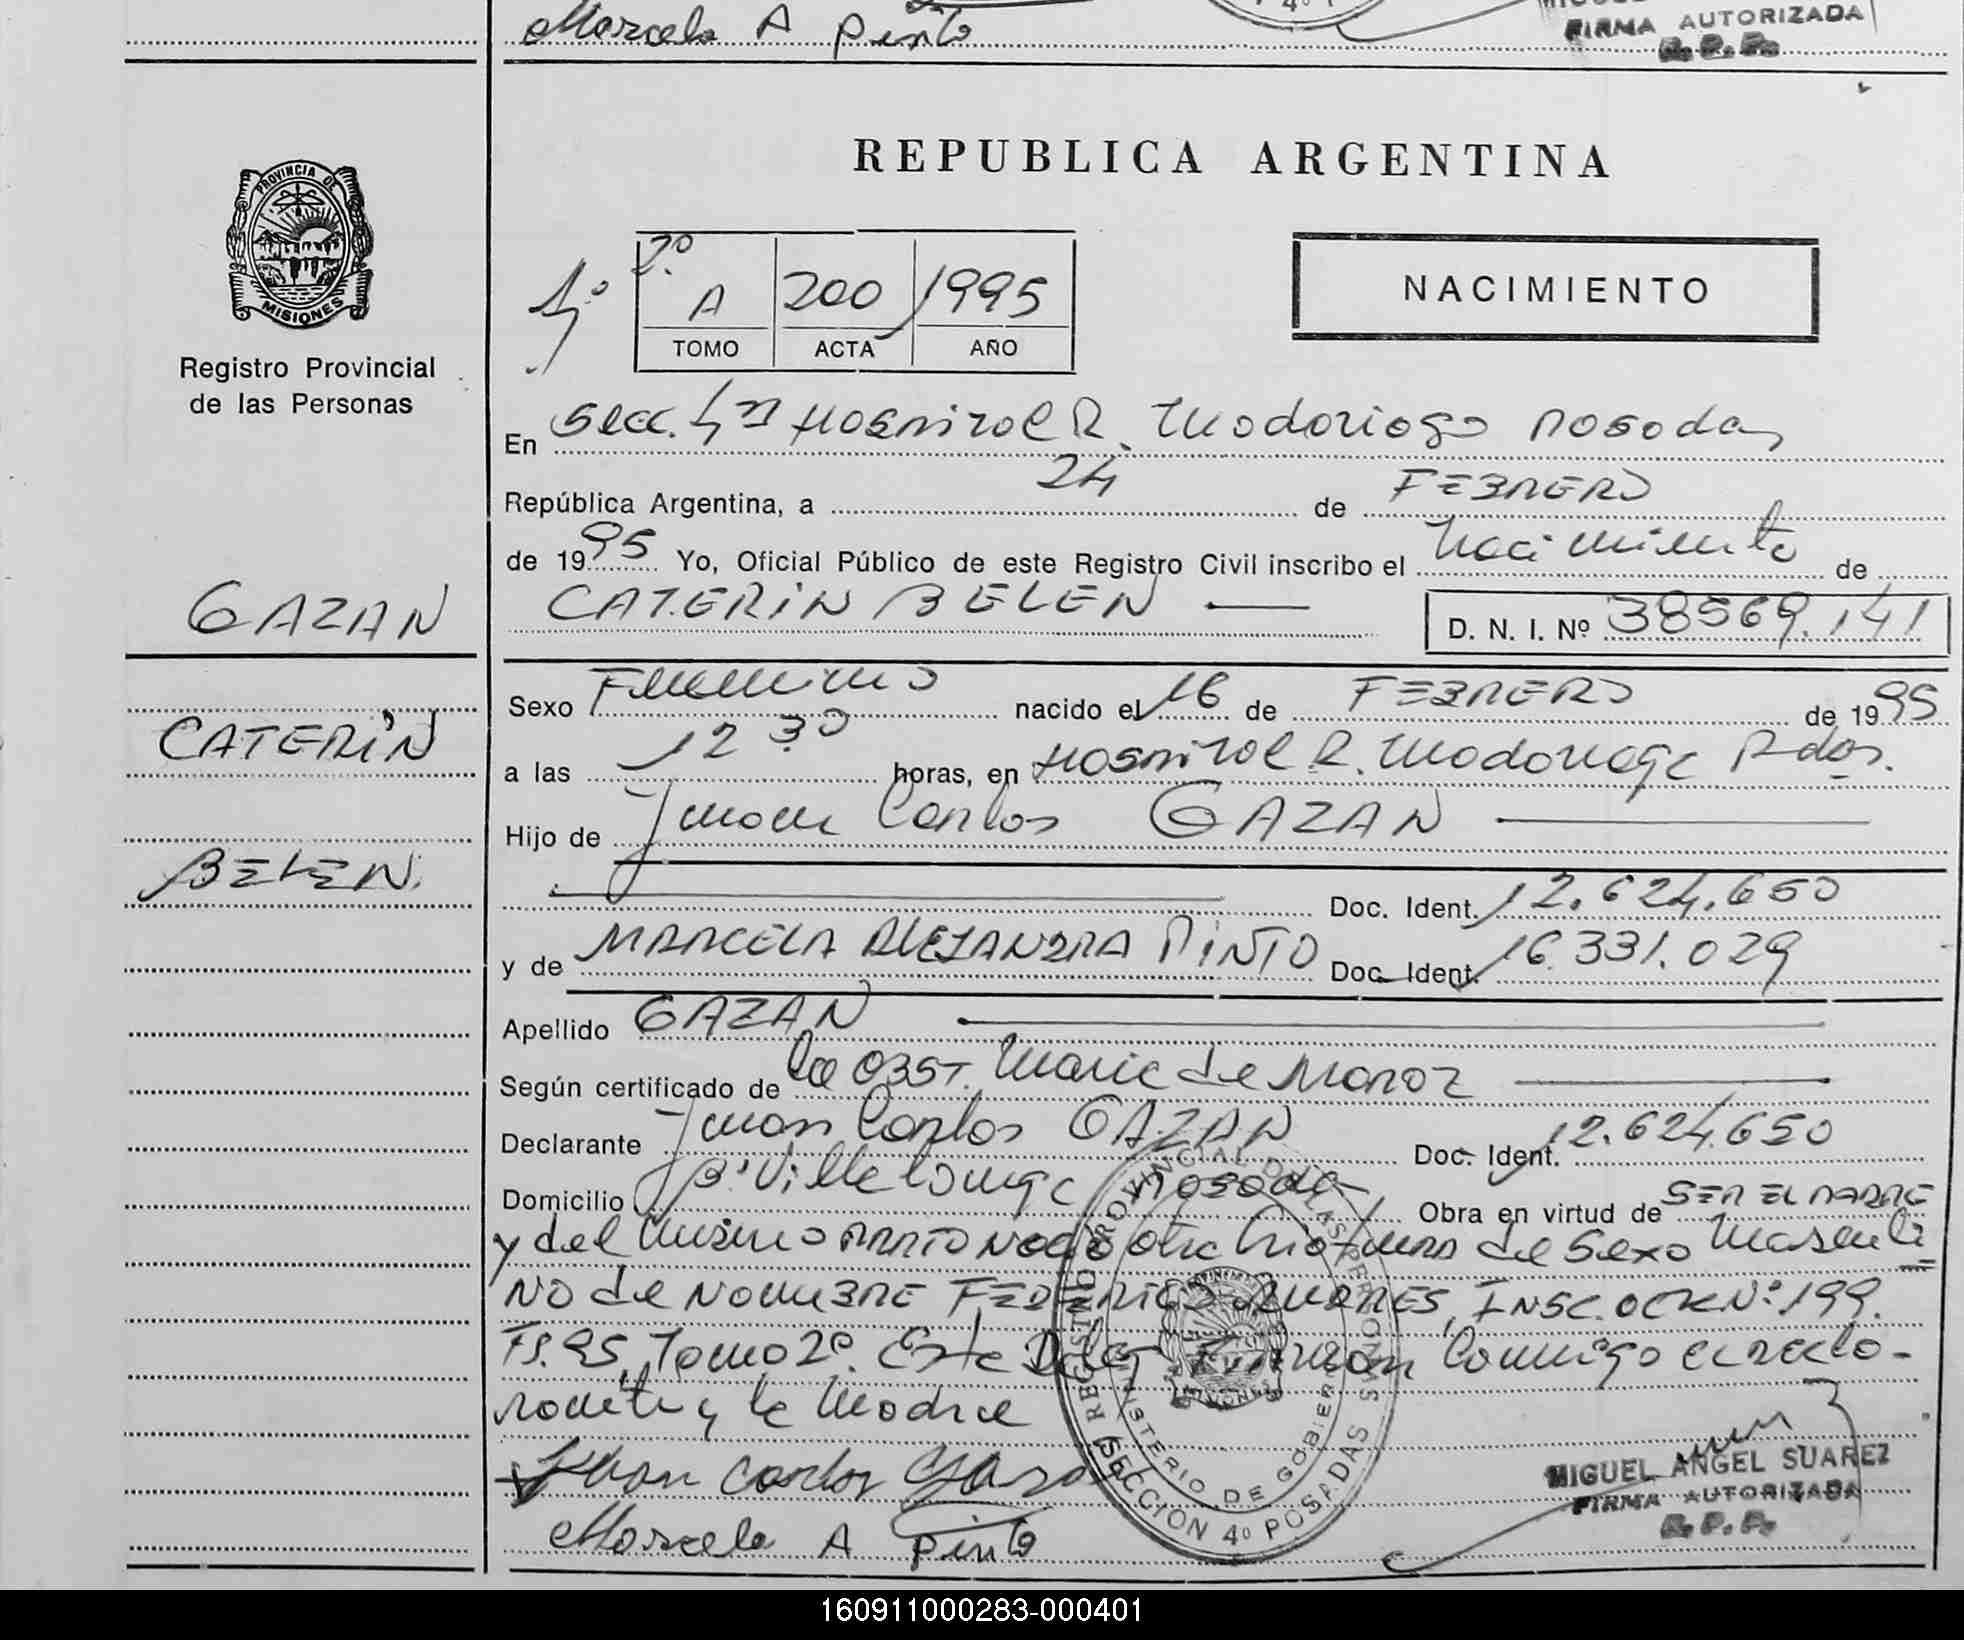 Marcela A Pinto
FIRMA AUTORIZADA
R. P. P.
PROVINCIA DE
MISIONES
Registro Provincial
de las Personas
REPUBLICA ARGENTINA
NACIMIENTO
1º 2º
A 200 1995
TOMO ACTA AÑO
En Secc. 4ta Hospital R. Madariaga Posadas
República Argentina, a 24 de FEBRERO
de 1995 Yo, Oficial Público de este Registro Civil inscribo el Nacimiento de
CATERIN BELEN
D. N. I. Nº 38569.141
GAZAN
CATERIN
BELEN.
Sexo Femenino nacido el 16 de FEBRERO de 1995
a las 12 30 horas, en Hospital R. Madariaga Pdas.
Hijo de Juan Carlos GAZAN
Doc. Ident. 12.624.650
y de MARCELA ALEJANDRA PINTO Doc. Ident. 16.331.029
Apellido GAZAN
Según certificado de la OBST. Maria de
Declarante Juan Carlos GAZAN Doc. Ident. 12.624.650
Domicilio Bº Villalonga Posadas Obra en virtud de SER EL PADRE
y del mismo PARTO NACIO otra criatura del Sexo Masculi
NO de NOMBRE FEDERICO INSC. Nº 199.
Fs. 95, Tomo 2º. Firman Conmigo el
y la Madre
Juan Carlos Gazan
Marcela A Pinto
REGISTRO PROVINCIAL DE LAS PERSONAS
MINISTERIO DE GOBIERNO
SECCION 4º POSADAS
MISIONES
MIGUEL ANGEL SUAREZ
FIRMA AUTORIZADA
R. P. P.
160911000283-000401